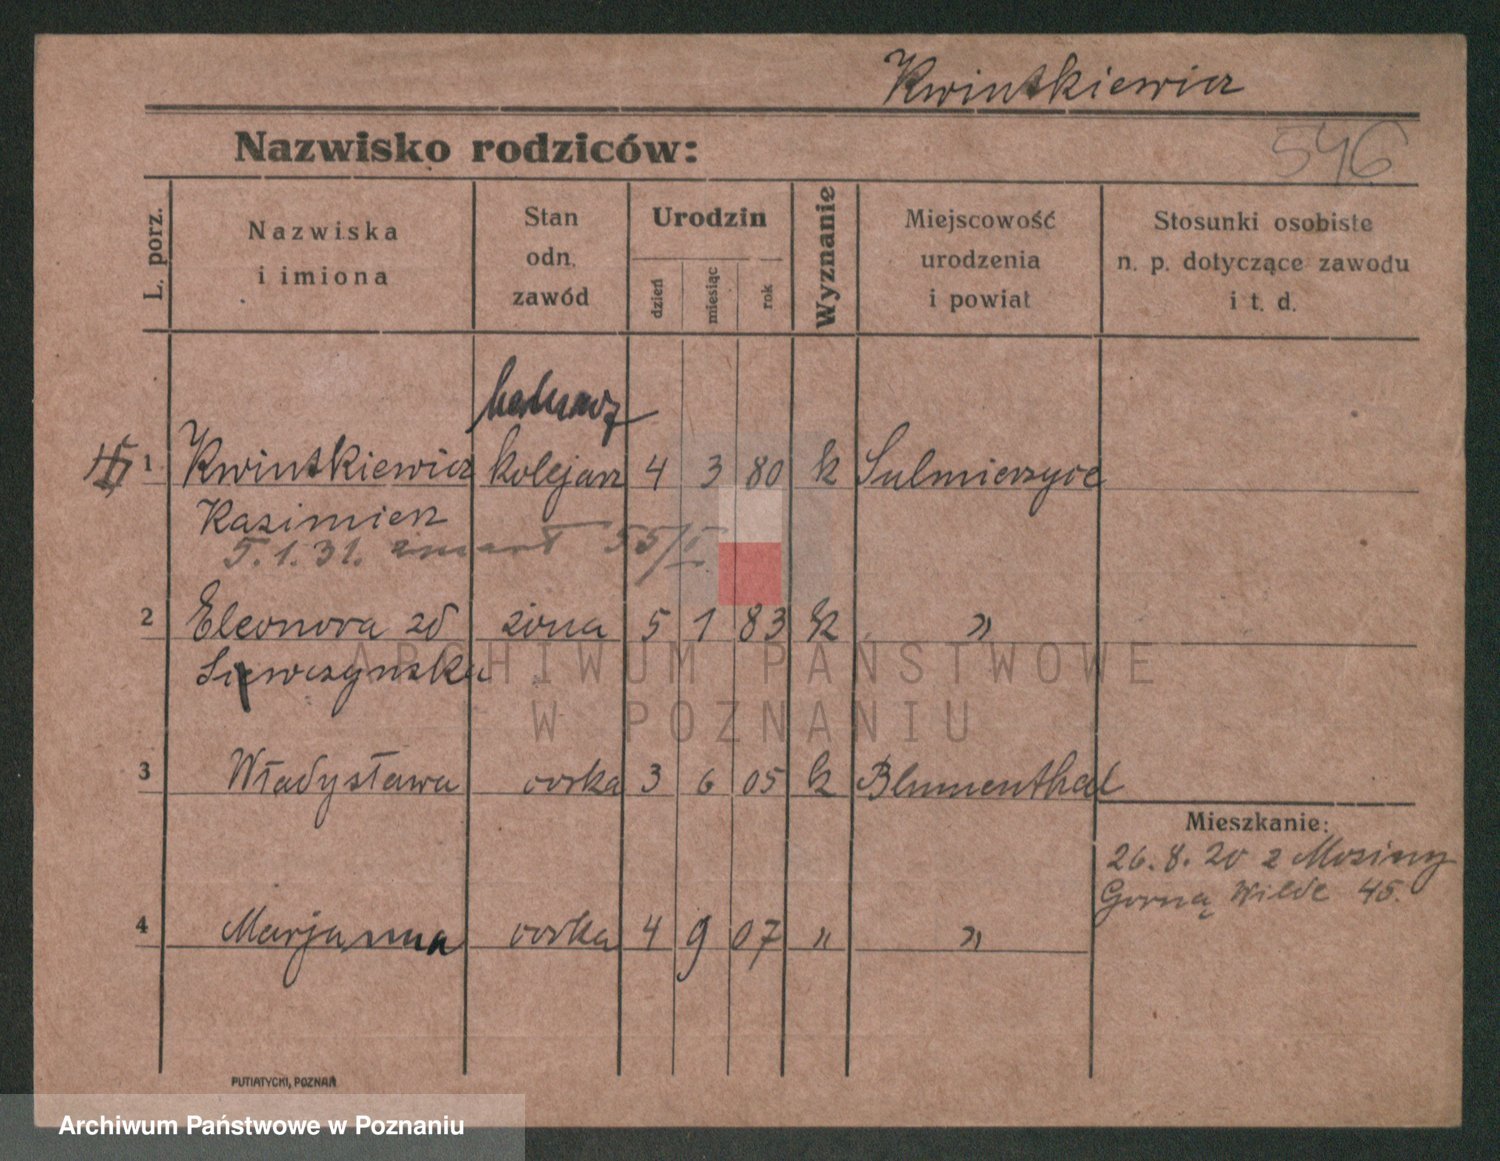 Kwintkiewicz
Nazwisko rodziców:
546
L. porz.
Nazwiska
i imiona
Stan
odn.
zawód
Urodzin
dzień
miesiąc
rok
Wyznanie
Miejscowość
urodzenia
i powiat
Stosunki osobiste
n. p. dotyczące zawodu
i t. d.
1 Kwintkiewicz kolejarz 4 3 80 k Sulmierzyce
Kazimierz
5.1.31. zmarł 55/I
2 Eleonora zd żona 5 1 83 k "
3 Władysława córka 3 6 05 k Blumenthal
Mieszkanie:
26.8.20 z Mosiny
Górna Wilde 45.
4 Marjanna córka 4 9 07 " "
PUTIATYCKI, POZNAŃ
ARCHIWUM PAŃSTWOWE
W POZNANIU
Archiwum Państwowe w Poznaniu